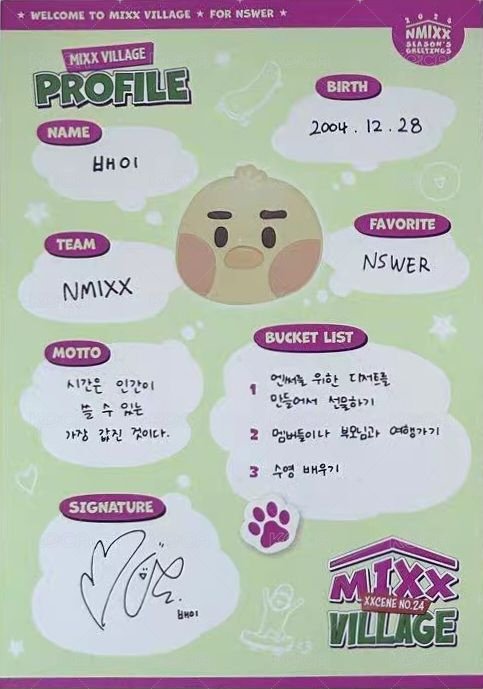 ★ WELCOME TO MIXX VILLAGE ★ FOR NSWER ★
2024
NMIXX
SEASON'S
GREETINGS
MIXX VILLAGE
PROFILE
BIRTH
2004. 12. 28
NAME
배이
FAVORITE
NSWER
TEAM
NMIXX
MOTTO
시간은 인간이
쓸 수 있는
가장 값진 것이다.
BUCKET LIST
1 엔써를 위한 디저트를
만들어서 선물하기
2 멤버들이나 부모님과 여행가기
3 수영 배우기
SIGNATURE
배이
MIXX
XXCENE NO.24
VILLAGE